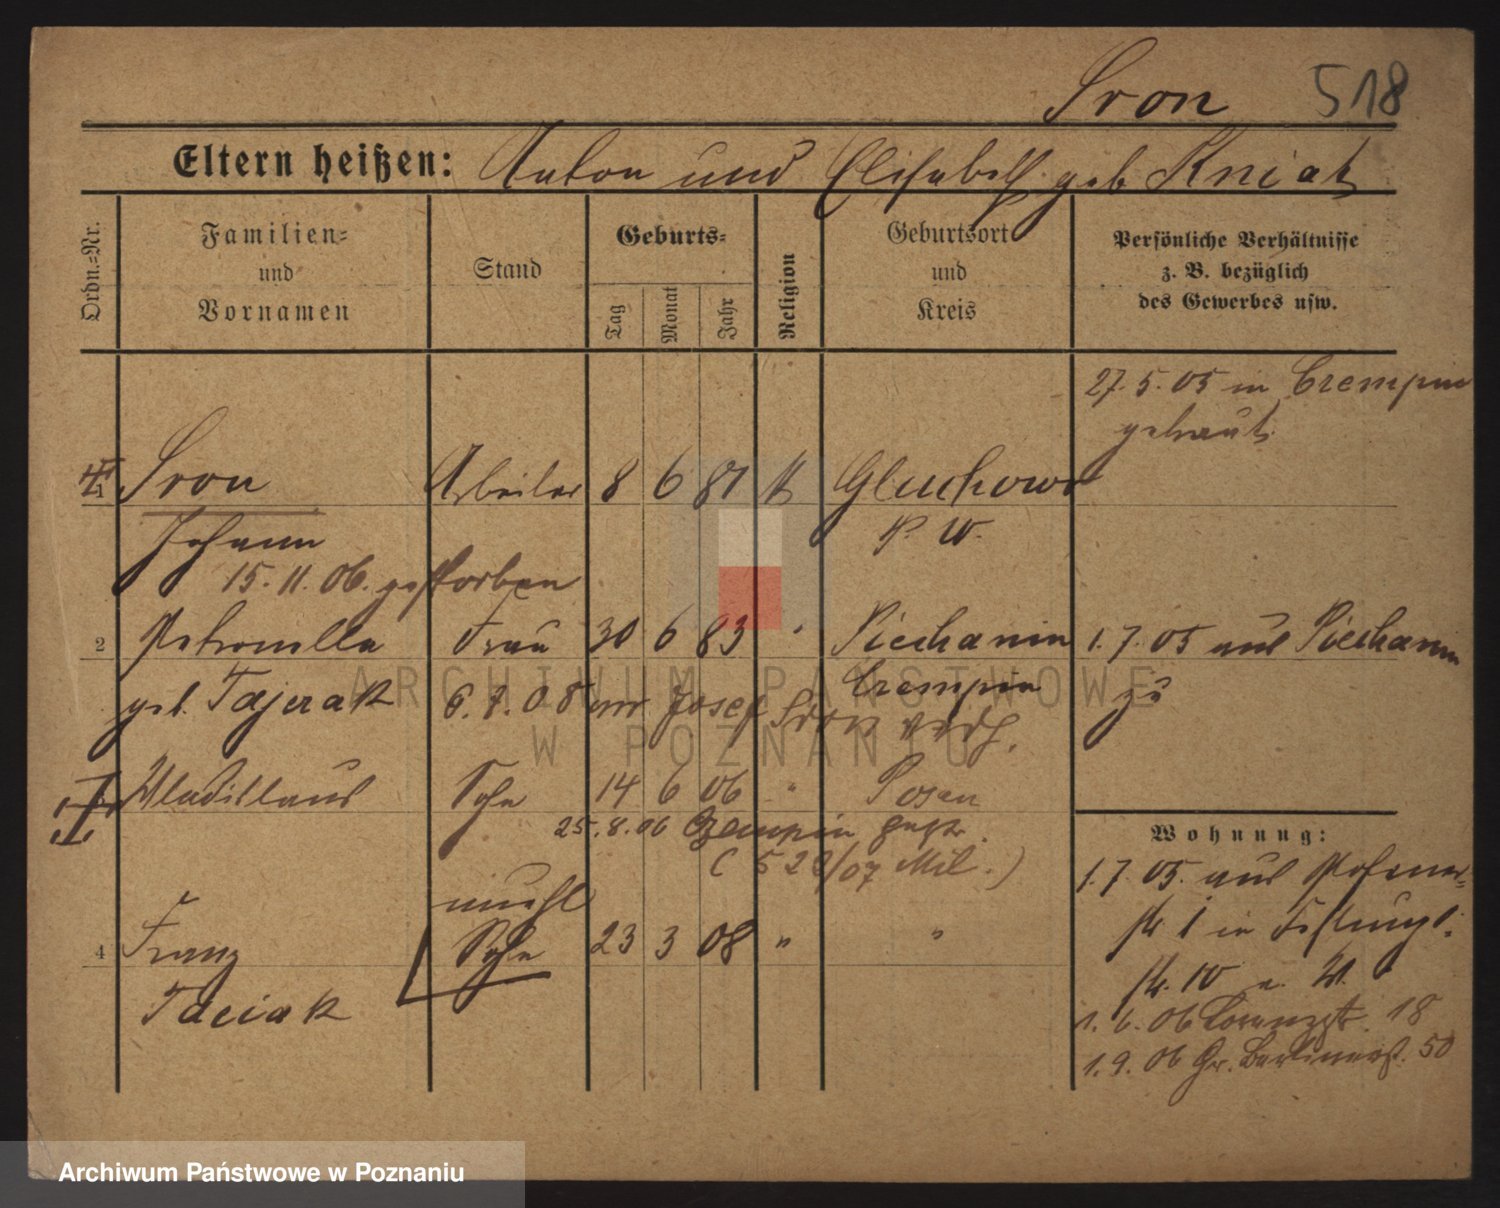 Sron 518
Eltern heißen: Anton und Elisabeth geb Kniat
Ordn.=Nr.
Familien=
und
Vornamen
Stand
Geburts=
Tag
Monat
Jahr
Religion
Geburtsort
und
Kreis
Persönliche Verhältnisse
z. B. bezüglich
des Gewerbes usw.
27. 5. 05 in Czempin
getraut.
1 Sron Arbeiter 8 6 81 k Gluchowo
Johann P. W.
15. 11. 06. gestorben
2 Petronella Frau 30 6 83 " Piechanin 1. 7. 05 aus Piechanin
geb. Tajerak 6. 7. 08 mit Josef Sron verh. Czempin zu
Wladislaus Sohn 14 6 06 " Posen
25. 8. 06 Czempin gest.
(528/07 Mil.)
Wohnung:
1. 7. 05. aus Posener-
str 1 in Festungs-
str. 10 a. W.
1. 6. 06 Lorenzstr. 18
1. 9. 06 Gr. Berlinerst. 50
unehl
4 Franz Sohn 23 3 08 " "
Taciak
ARCHIWUM PAŃSTWOWE
W POZNANIU
Archiwum Państwowe w Poznaniu